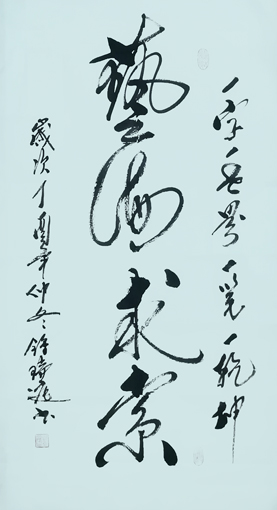 一字一世界一笔一乾坤
藝海求索
歲次丁酉年仲冬